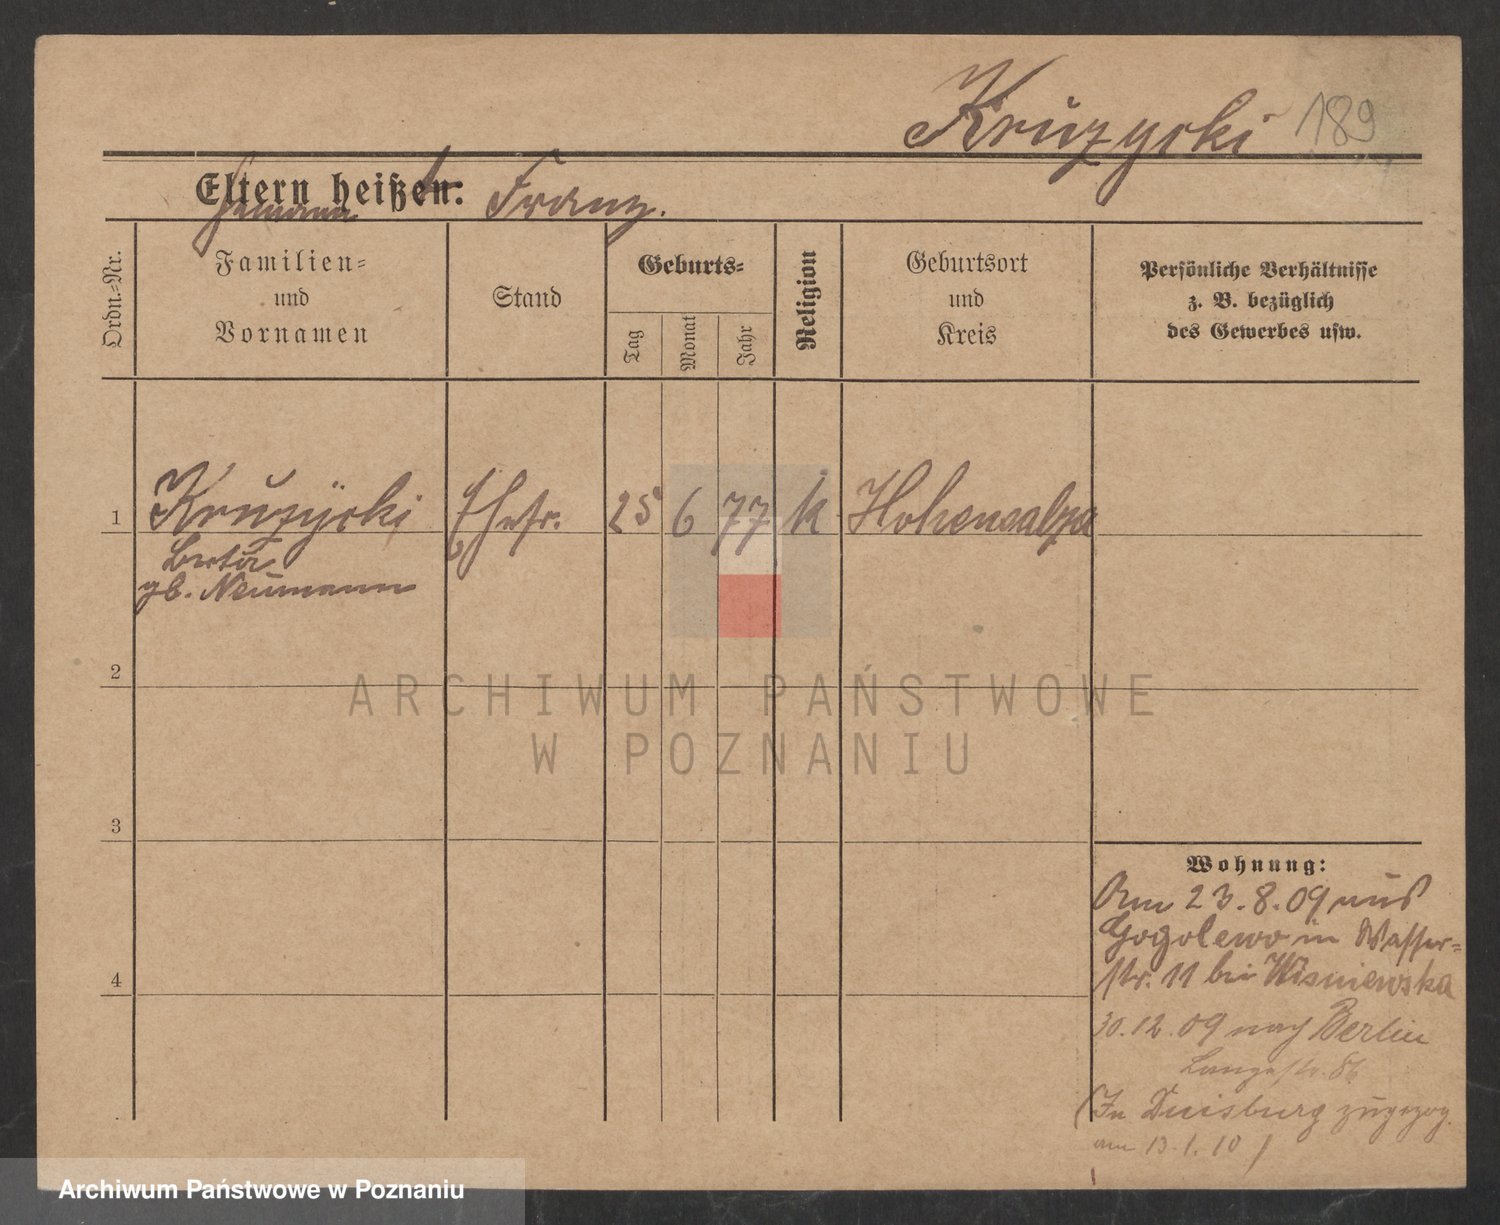 Kruzycki 189
Eltern heißen: Franz.
Ordn.-Nr.
Familien-
und
Vornamen
Stand
Geburts-
Tag
Monat
Jahr
Religion
Geburtsort
und
Kreis
Persönliche Verhältnisse
z. B. bezüglich
des Gewerbes usw.
1 Kruzycki Ehefr. 25 6 77 k Hohensalza
Berta
gb. Neumann
2
3
4
Wohnung:
Am 23.8.09 aus
Gogolewo in Wasser-
str. 11 bei Wisniewska
30.12.09 nach Berlin
Langestr. 86
(In Duisburg zugezog.
am 13.1.10)
ARCHIWUM PAŃSTWOWE
W POZNANIU
Archiwum Państwowe w Poznaniu